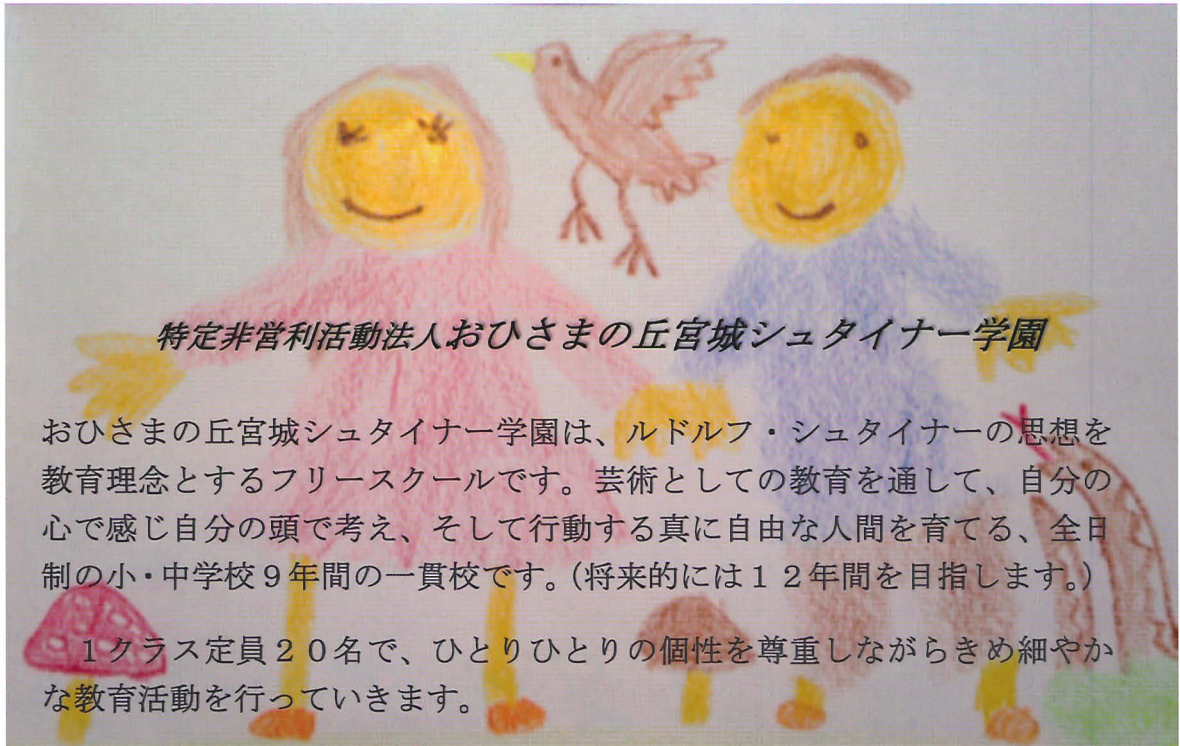 特定非営利活動法人おひさまの丘宮城シュタイナー学園
おひさまの丘宮城シュタイナー学園は、ルドルフ・シュタイナーの思想を
教育理念とするフリースクールです。芸術としての教育を通して、自分の
心で感じ自分の頭で考え、そして行動する真に自由な人間を育てる、全日
制の小・中学校９年間の一貫校です。（将来的には１２年間を目指します。）
１クラス定員２０名で、ひとりひとりの個性を尊重しながらきめ細やか
な教育活動を行っていきます。